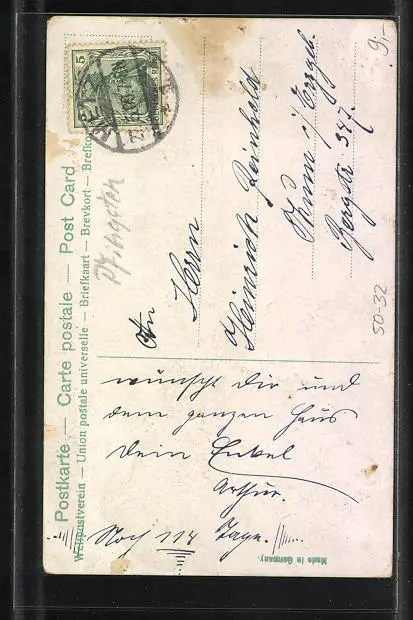 Postkarte — Carte postale — Post Card
Weltpostverein — Union postale universelle — Briefkaart — Brevkort — Brefko
5
Pfingsten
9,-
An Herrn
Heinrich Reinhold
Thum i/Erzgeb.
Bergstr. 347.
50-32
wünscht Dir und
dem ganzen Haus
Dein Enkel
Arthur.
Noch 114 Tage.
Made in Germany